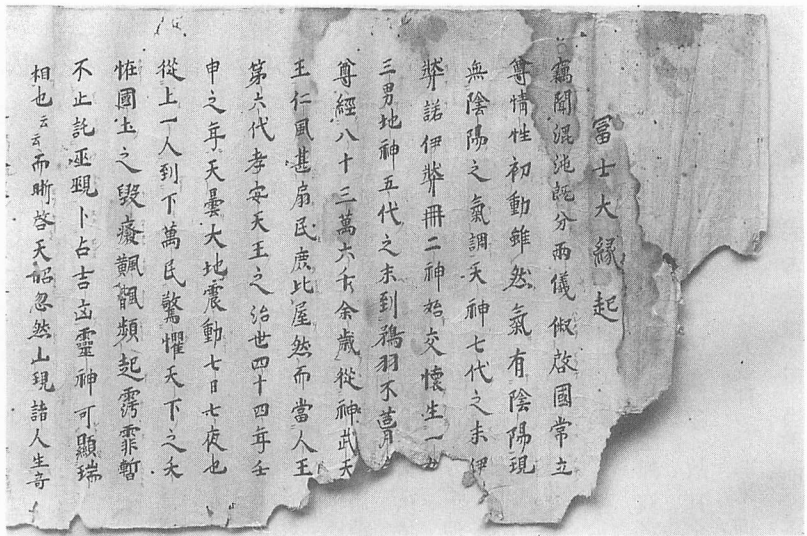 冨士大縁起
竊聞混沌既分兩儀俶啓國常立
尊情性初動雖然氣有陰陽現
無陰陽之氣調天神七代之末伊
弉諾伊弉冊二神始交懷生一女
三男地神五代之末到鵜羽不葺
尊經八十三萬六千余歲從神武天
王仁風甚扇民庶比屋然而當人王
第六代孝安天王之治世四十四年壬
申之年天曇大地震動七日七夜也
從上一人到下萬民驚懼天下之未
恠國土之毀癈颿颿頻起霶霏暫
不止託巫覡卜占吉凶靈神可顯瑞
相也云云而晰啓天詔忽然山現諸人生奇